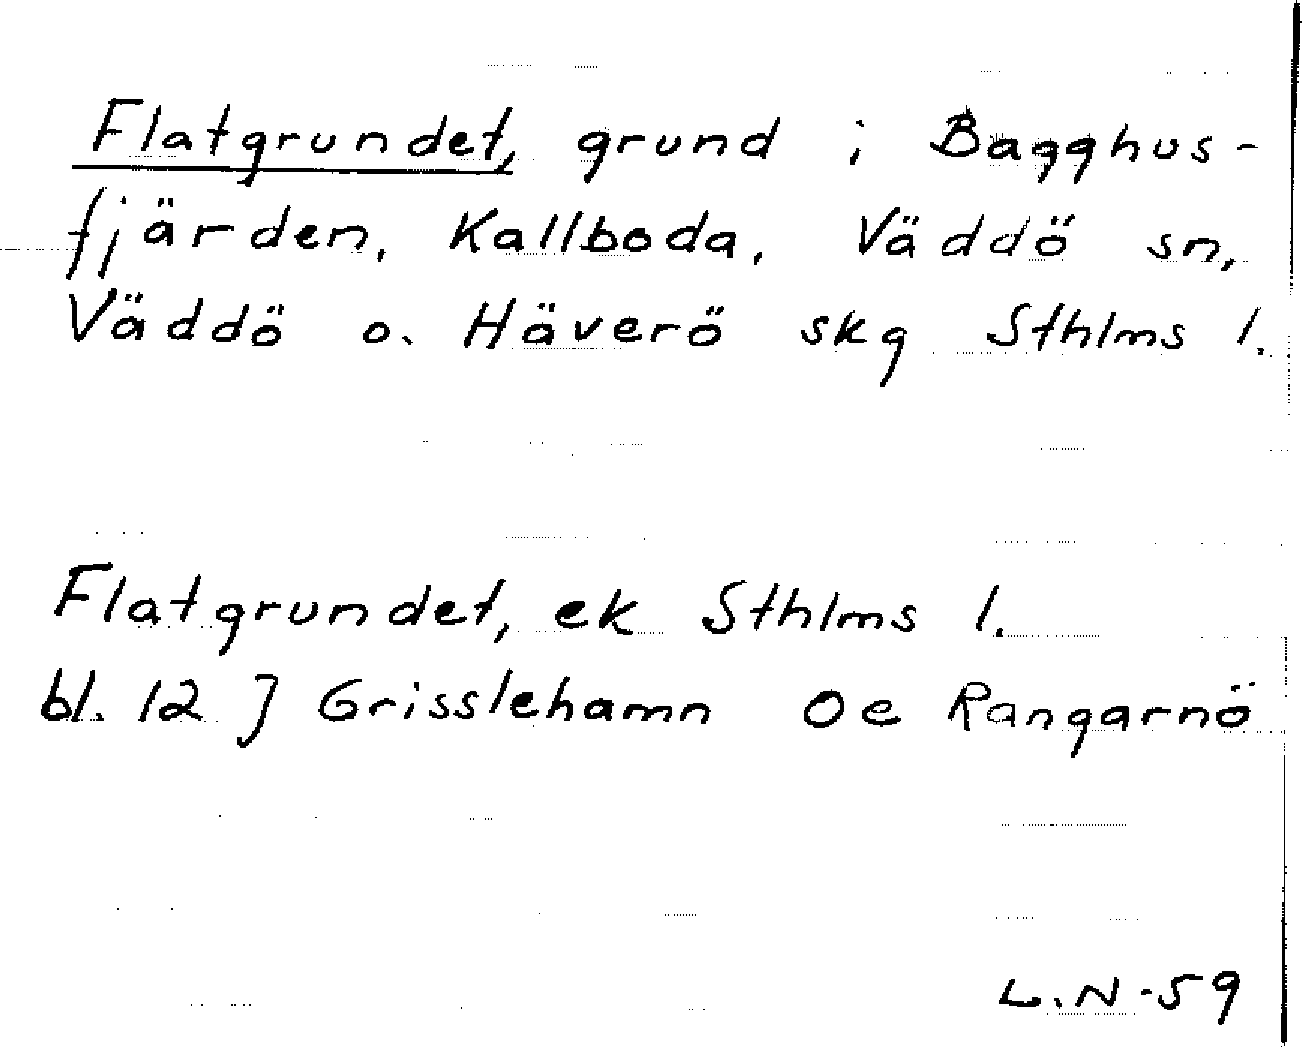 Flatgrundet, grund i Bagghus-
fjärden, Kallboda, Väddö sn,
Väddö o. Häverö skg Sthlms l.
Flatgrundet, ek Sthlms l.
bl. 12 J Grisslehamn Oe Rangarnö
L.N-59